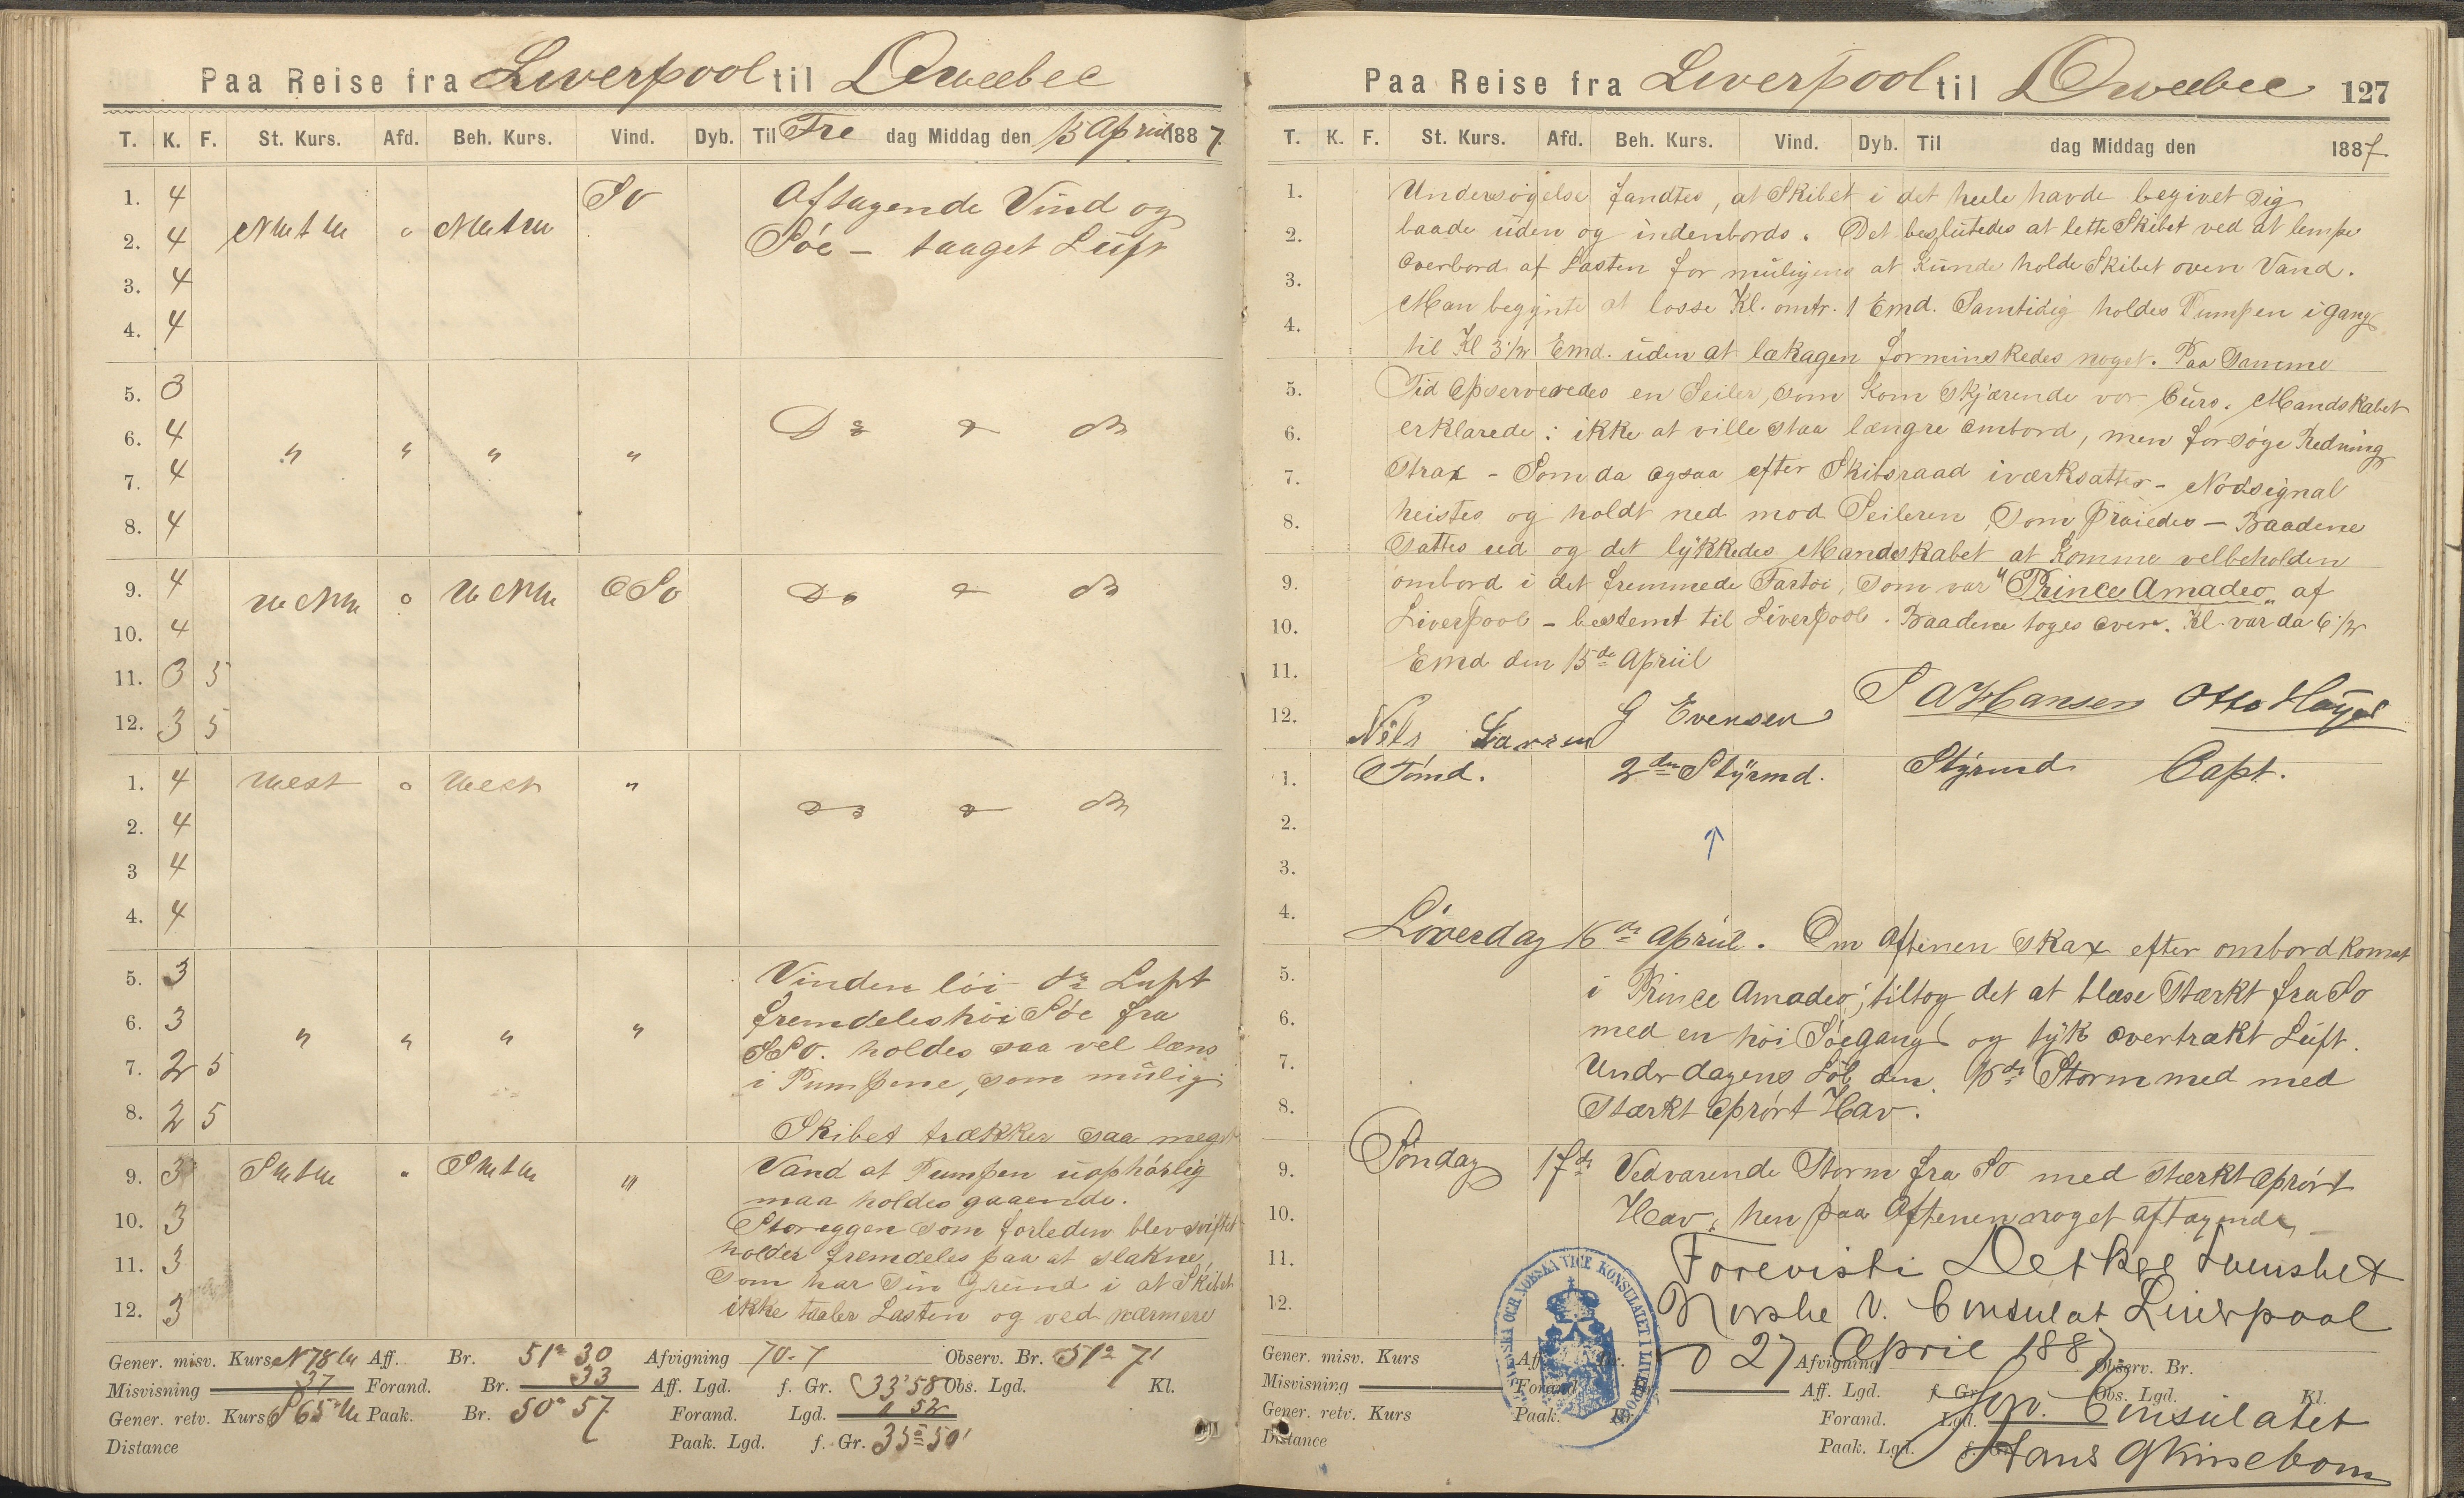 Paa Reise fra Liverpool til Qweebec
T. K. F. St. Kurs. Afd. Beh. Kurs. Vind. Dyb. Til Fre dag Middag den 15 April 1887
1. 4 SO Aftagende Vind og
2. 4 NWtW " NWtW Søe - taaget Luft
3. 4
4. 4
5. 3
6. 4 " " " " Do & do
7. 4
8. 4
9. 4 WNW o WNW OSO Do & do
10. 4
11. 3 5
12. 3 5
1. 4 West o West " Do & do
2. 4
3 4
4. 4
5. 3 Vinden löi do Luft
6. 3 " " " " fremdeles höi Söe fra
7. 2 5 SSO. holdes saa vel læns
8. 2 5 i Pumpene, som mulig.
Skibet trækker saa meget
9. 3 SWtW " SWtW " Vand at Pumpen uophörlig
maa holdes gaaende.
10. 3 Storeggen som forleden blev sviftet
11. 3 holder fremdeles paa at slakne,
som har sin Grund i at Skibet
12. 3 ikke taaler Lasten og ved nærmere
Gener. misv. Kurs N78W Aff. Br. 51° 30 Afvigning 70-7 Observ. Br. 51° 7'
Misvisning 37 Forand. Br. 33 Aff. Lgd. f. Gr. 33°58 Obs. Lgd. Kl.
Gener. retv. Kurs S65W Paak. Br. 50° 57 Forand. Lgd. 1 52
Distance Paak. Lgd. f. Gr. 35° 50'
Paa Reise fra Liverpool til Qweebec 127
T. K. F. St. Kurs. Afd. Beh. Kurs. Vind. Dyb. Til dag Middag den 1887.
1. Undersögelse fandtes, at Skibet i det hele havde begivet sig
2. baade uden og indenbords. Det beslutedes at lette Skibet ved at lempe
3. Overbord af Lasten for muligens at kunde holde Skibet oven Vand.
Man begynte at losse Kl. omtr. 1 Emd. Samtidig holdes Pumpen i gang
4. til Kl 3 1/2 Emd. uden at lækagen forminskedes noget. Paa Samme
5. Tid Opserveredes en Seiler, som kom skjærende vor Curs. Mandskabet
6. erklarede: ikke at ville staa længre ombord, men forsöge Redning
7. Strax - Som da ogsaa efter Skibsraad iværksattes - Nödsignal
8. heistes og holdt ned mod Seileren, som praiedes - Baadene
Sattes ud og det lykkedes Mandskabet at komme velbeholden
9. ombord i det fremmede Fartöi, som var "Prince Amadeo" af
10. Liverpool - bestemt til Liverpool. Baadene toges over. Kl. var da 6 1/2
11. Emd den 15de April
12. Nils Larsen G Evensen S A Hansen Otto Höyer
1. Tömd. 2den Styrmd. Styrmd Capt.
2.
3.
4. Löverdag 16de April. Om Aftenen strax efter ombord komst
5. i Prince Amadeo, tiltog det at blæse Stærkt fra SO
6. med en höi Söegang og tyk overtrækt Luft.
7. Under dagens Löb den 16de Storm med med
8. Stærkt Oprört Hav.
9. Söndag 17de Vedvarende Storm fra SO med stærkt Oprört
10. Hav, hen paa Aftenen noget aftagende
11. Forevist i Det Kgl Svensket
12. Norske V. Consulat Liverpool
SVENSKA OCH NORSKA VICE KONSULATET I LIVERPOOL
Gener. misv. Kurs Aff. Br. D 27 April 1887 Afvigning Observ. Br.
Misvisning Forand. Br. Aff. Lgd. f. Gr. Obs. Lgd. Kl.
Gener. retv. Kurs Paak. Br. Forand. Lgd. Consulatet
Distance Paak. Lgd. f. Gr. Hans